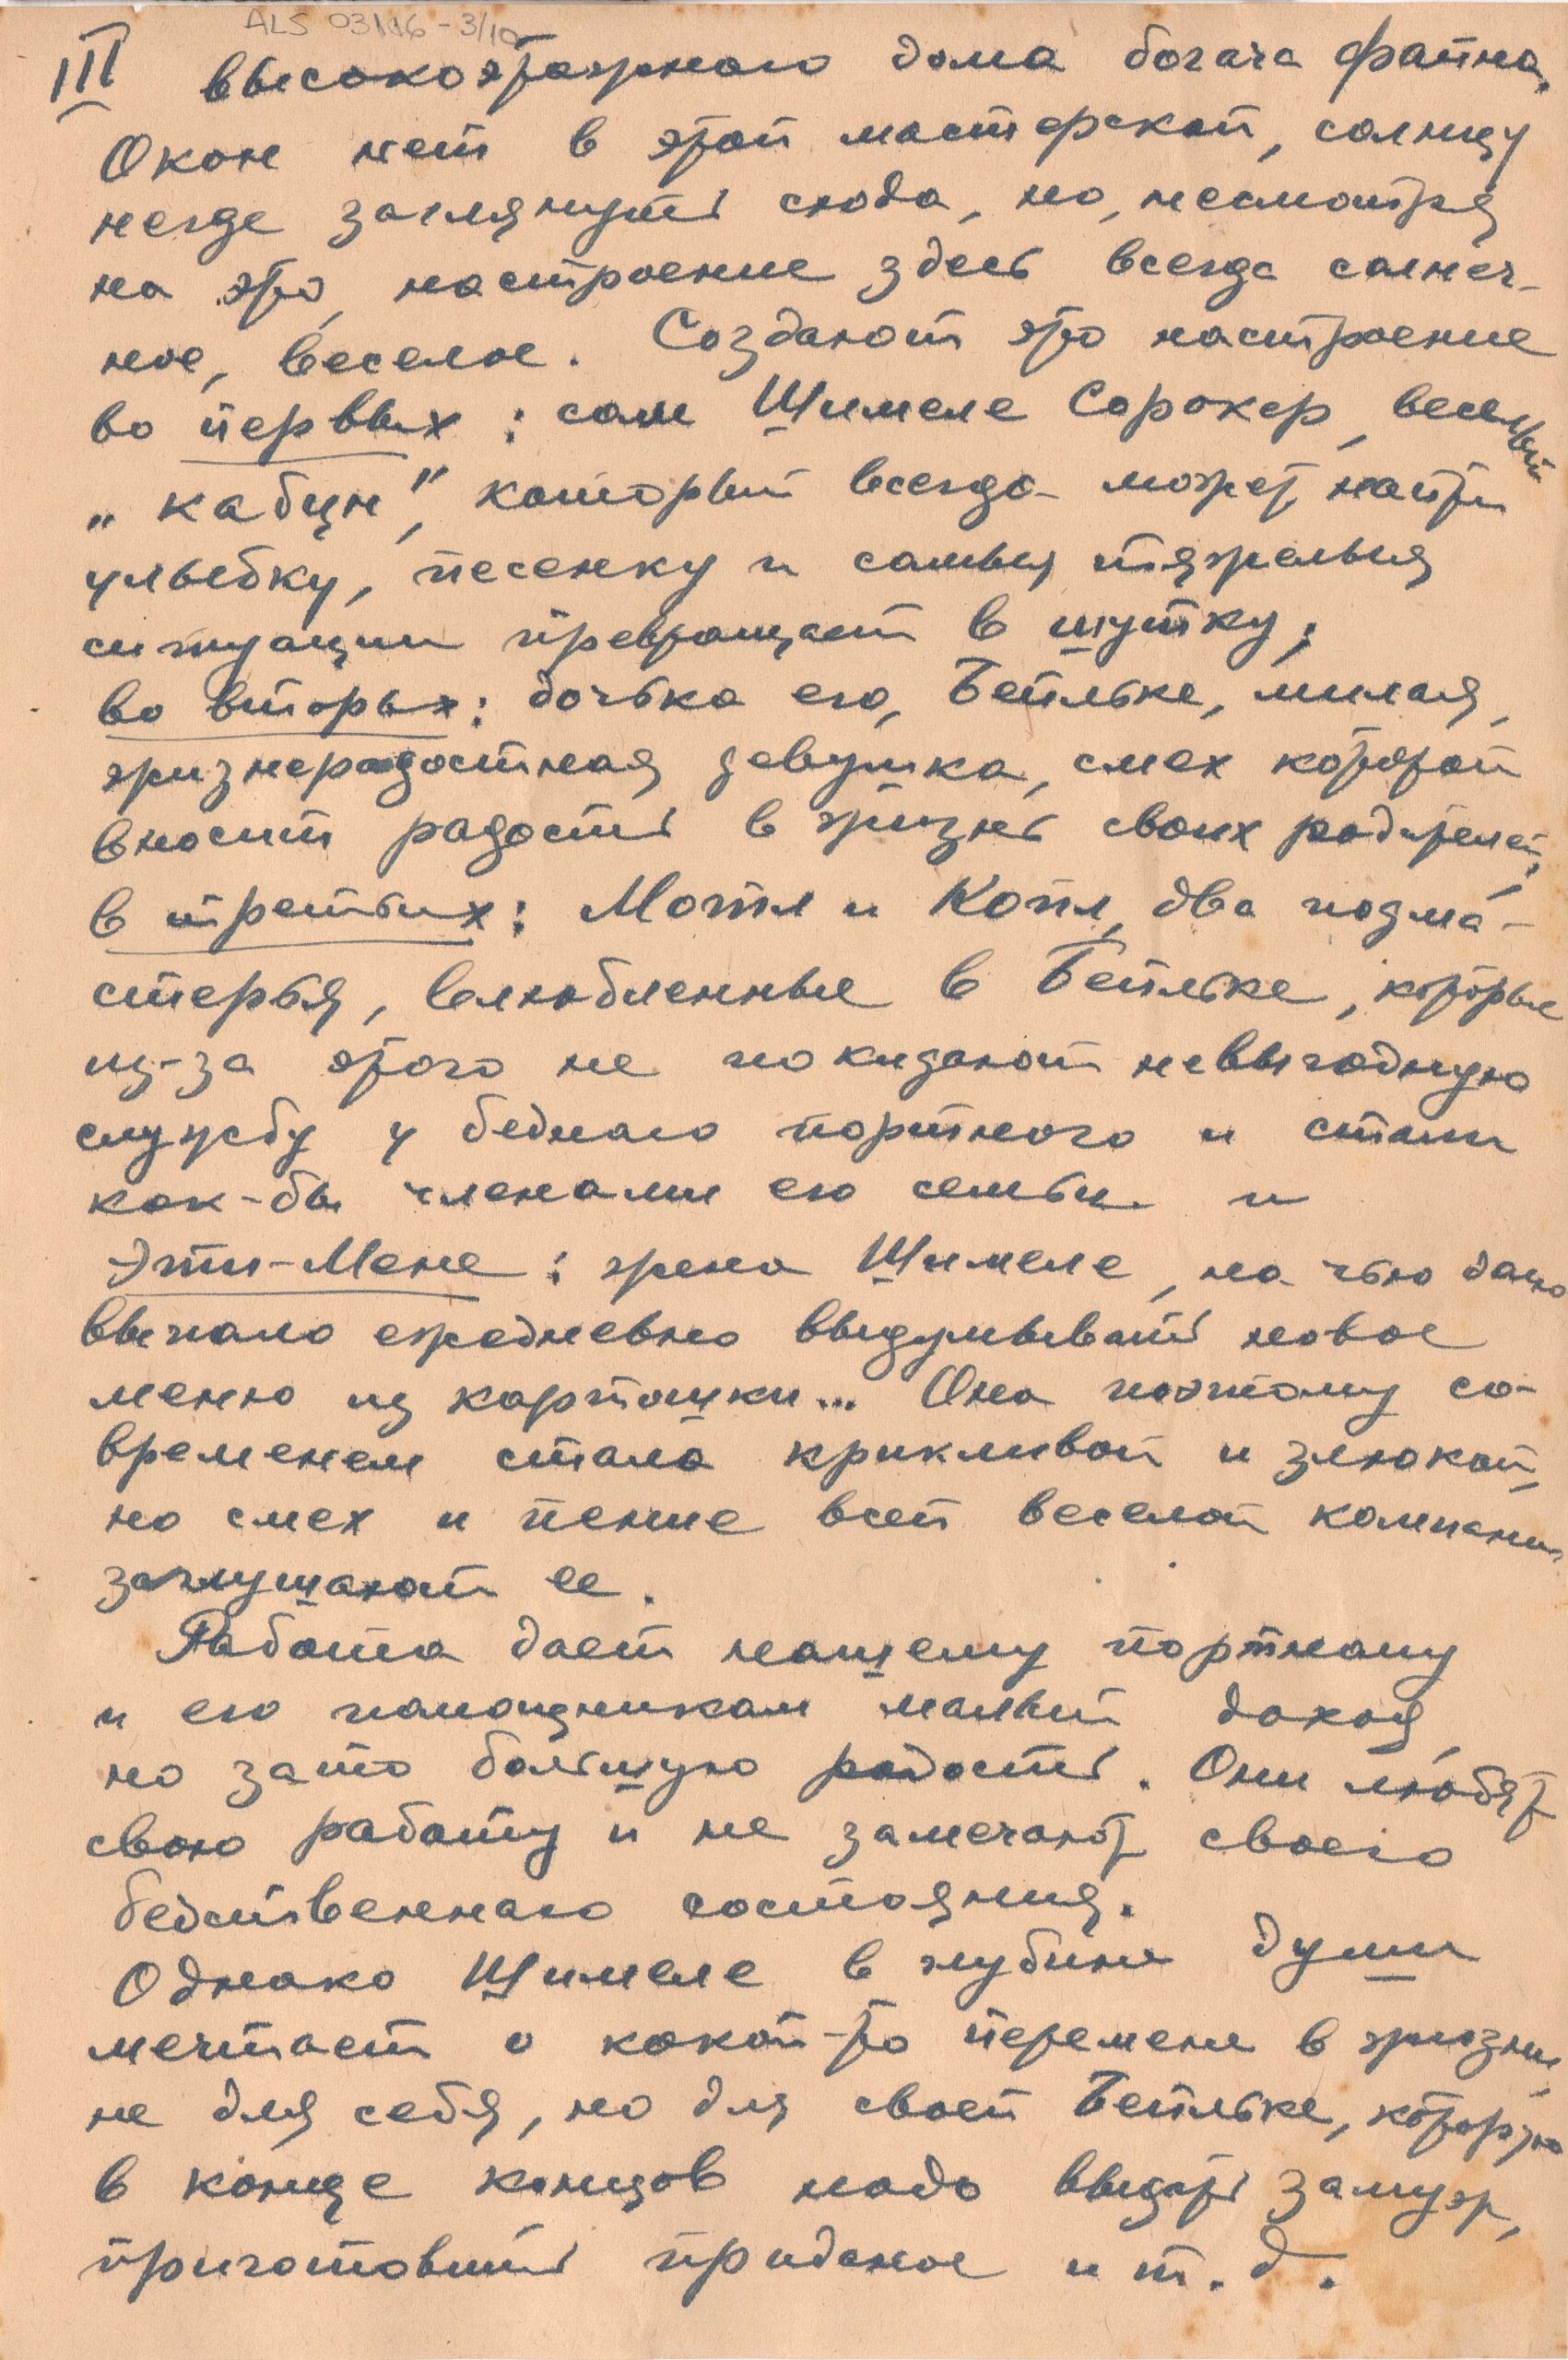 ALS 03116-3/10
III высокоэтажного дома богача Файна.
Окон нет в этой мастерской, солнцу
негде заглянуть сюда, но, несмотря
на это, настроение здесь всегда солнеч-
ное, веселое. Создают это настроение
во первых: сам Шимеле Сорокер, веселый
„кабцн", который всегда может найти
улыбку, песенку и самыя тяжелыя
ситуации превращает в шутку;
во вторых: дочька его, Бейльке, милая,
жизнерадостная девушка, смех которой
вносит радость в жизнь своих родителей;
в третьих: Мотл и Копл, два подма-
стерья, влюбленные в Бейльке, которые
из-за этого не покидают невыгодную
службу у беднаго портного и стали
как-бы членами его семьи и
Эти-Мене: жена Шимеле, на чью долю
выпало ежедневно выдумывать новое
меню из картошки... Она поэтому со-
временем стала крикливой и злюкой,
но смех и пение всей веселой компании
заглушают ее.
Работа дает нашему портному
и его помощникам малый доход,
но зато большую радость. Они любят
свою работу и не замечают своего
бедственнаго состояния.
Однако Шимеле в глубине души
мечтает о какой-то перемене в жизни,
не для себя, но для своей Бейльке, которую
в конце концов надо выдать замуж,
приготовить приданое и т. д.